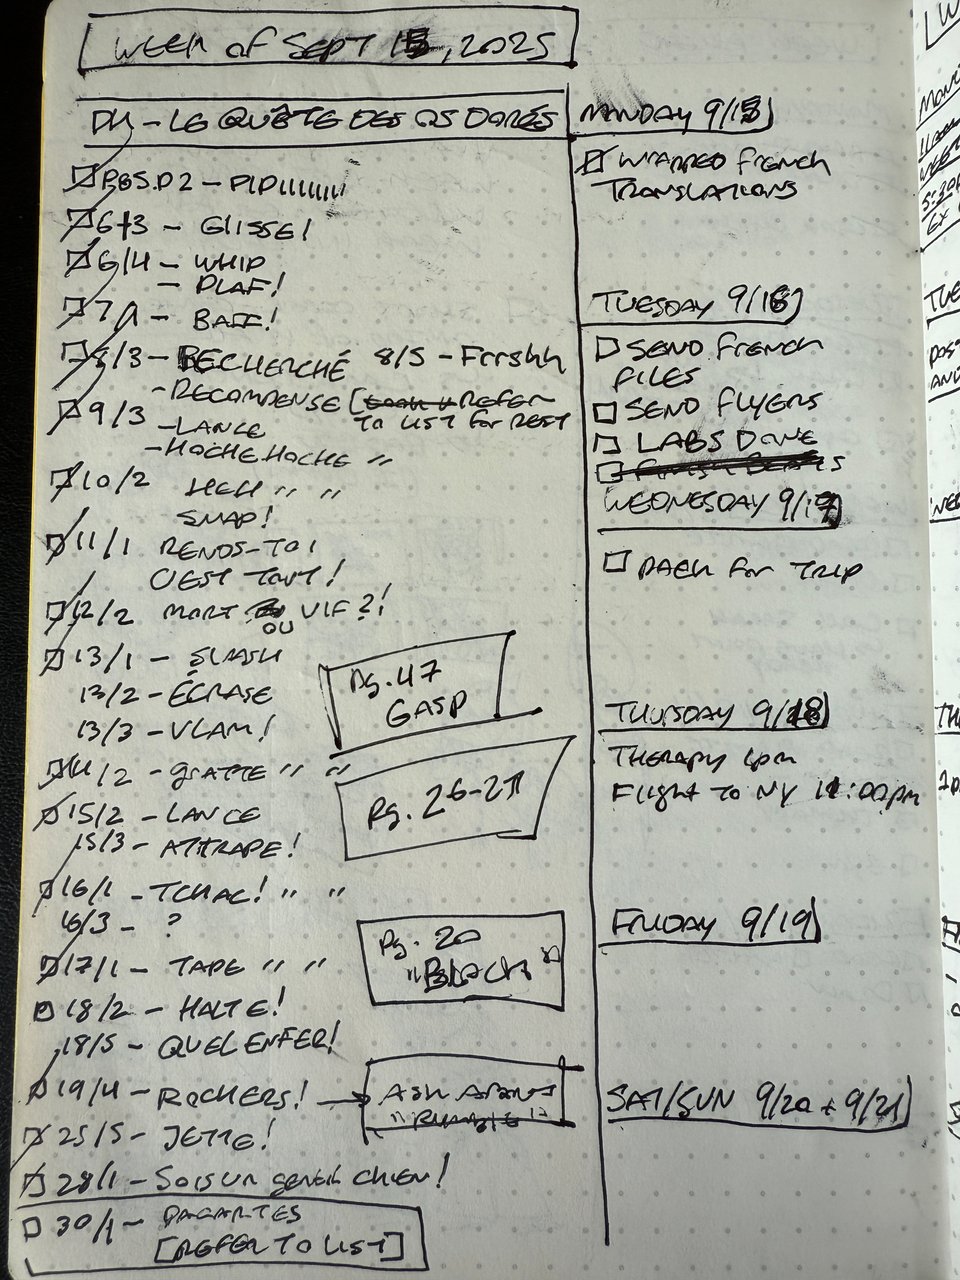 WEEK OF SEPT 15, 2025
DH - LE QUÊTE DES OS DORÉS
PGS. P2 - PIPIIIIIIII
6+3 - GLISSE!
6/4 - WHIP
- PLAF!
7/1 - BAFF!
8/3 - RECHERCHÉ 8/5 - Frrshh
- RECOMPENSE [REFER
TO LIST FOR REST
9/3 - LANCE
- HOCHE HOCHE "
10/2 HEH " "
SNAP!
11/1 RENDS-TOI
C'EST TOUT!
12/2 MORT OU VIF?!
13/1 - SLASH
13/2 - ÉCRASE
13/3 - VLAM!
14/2 - GRATTE " "
15/2 - LANCE
15/3 - ATTRAPE!
16/1 - TCHAC! " "
16/3 - ?
17/1 - TAPE " "
18/2 - HALTE!
18/5 - QUEL ENFER!
19/4 - ROCHERS! →
25/5 - JETTE!
28/1 - SOIS UN GENTIL CHIEN!
30/1 - PAGARTES
[REFER TO LIST]
Pg. 47
GASP
Pg. 26-27
Pg. 20
"BLACK"
ASK ABOUT
"RUMBLE"
MONDAY 9/15
WRAPPED FRENCH
TRANSLATIONS
TUESDAY 9/16
SEND FRENCH
FILES
SEND FLYERS
LABS DONE
WEDNESDAY 9/17
PACK FOR TRIP
THURSDAY 9/18
THERAPY 1pm
Flight TO NY 11:00pm
FRIDAY 9/19
SAT/SUN 9/20 + 9/21